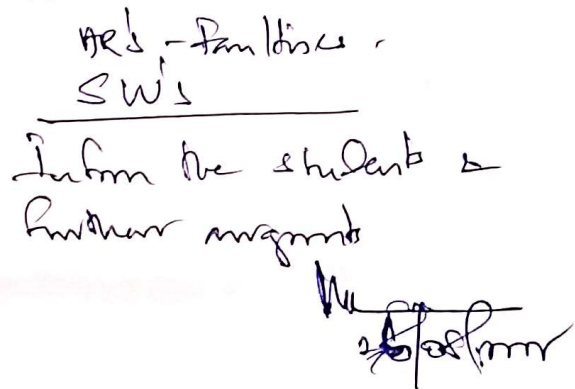 AR's - Faculties.
SW's
Inform the students &
further arrgments